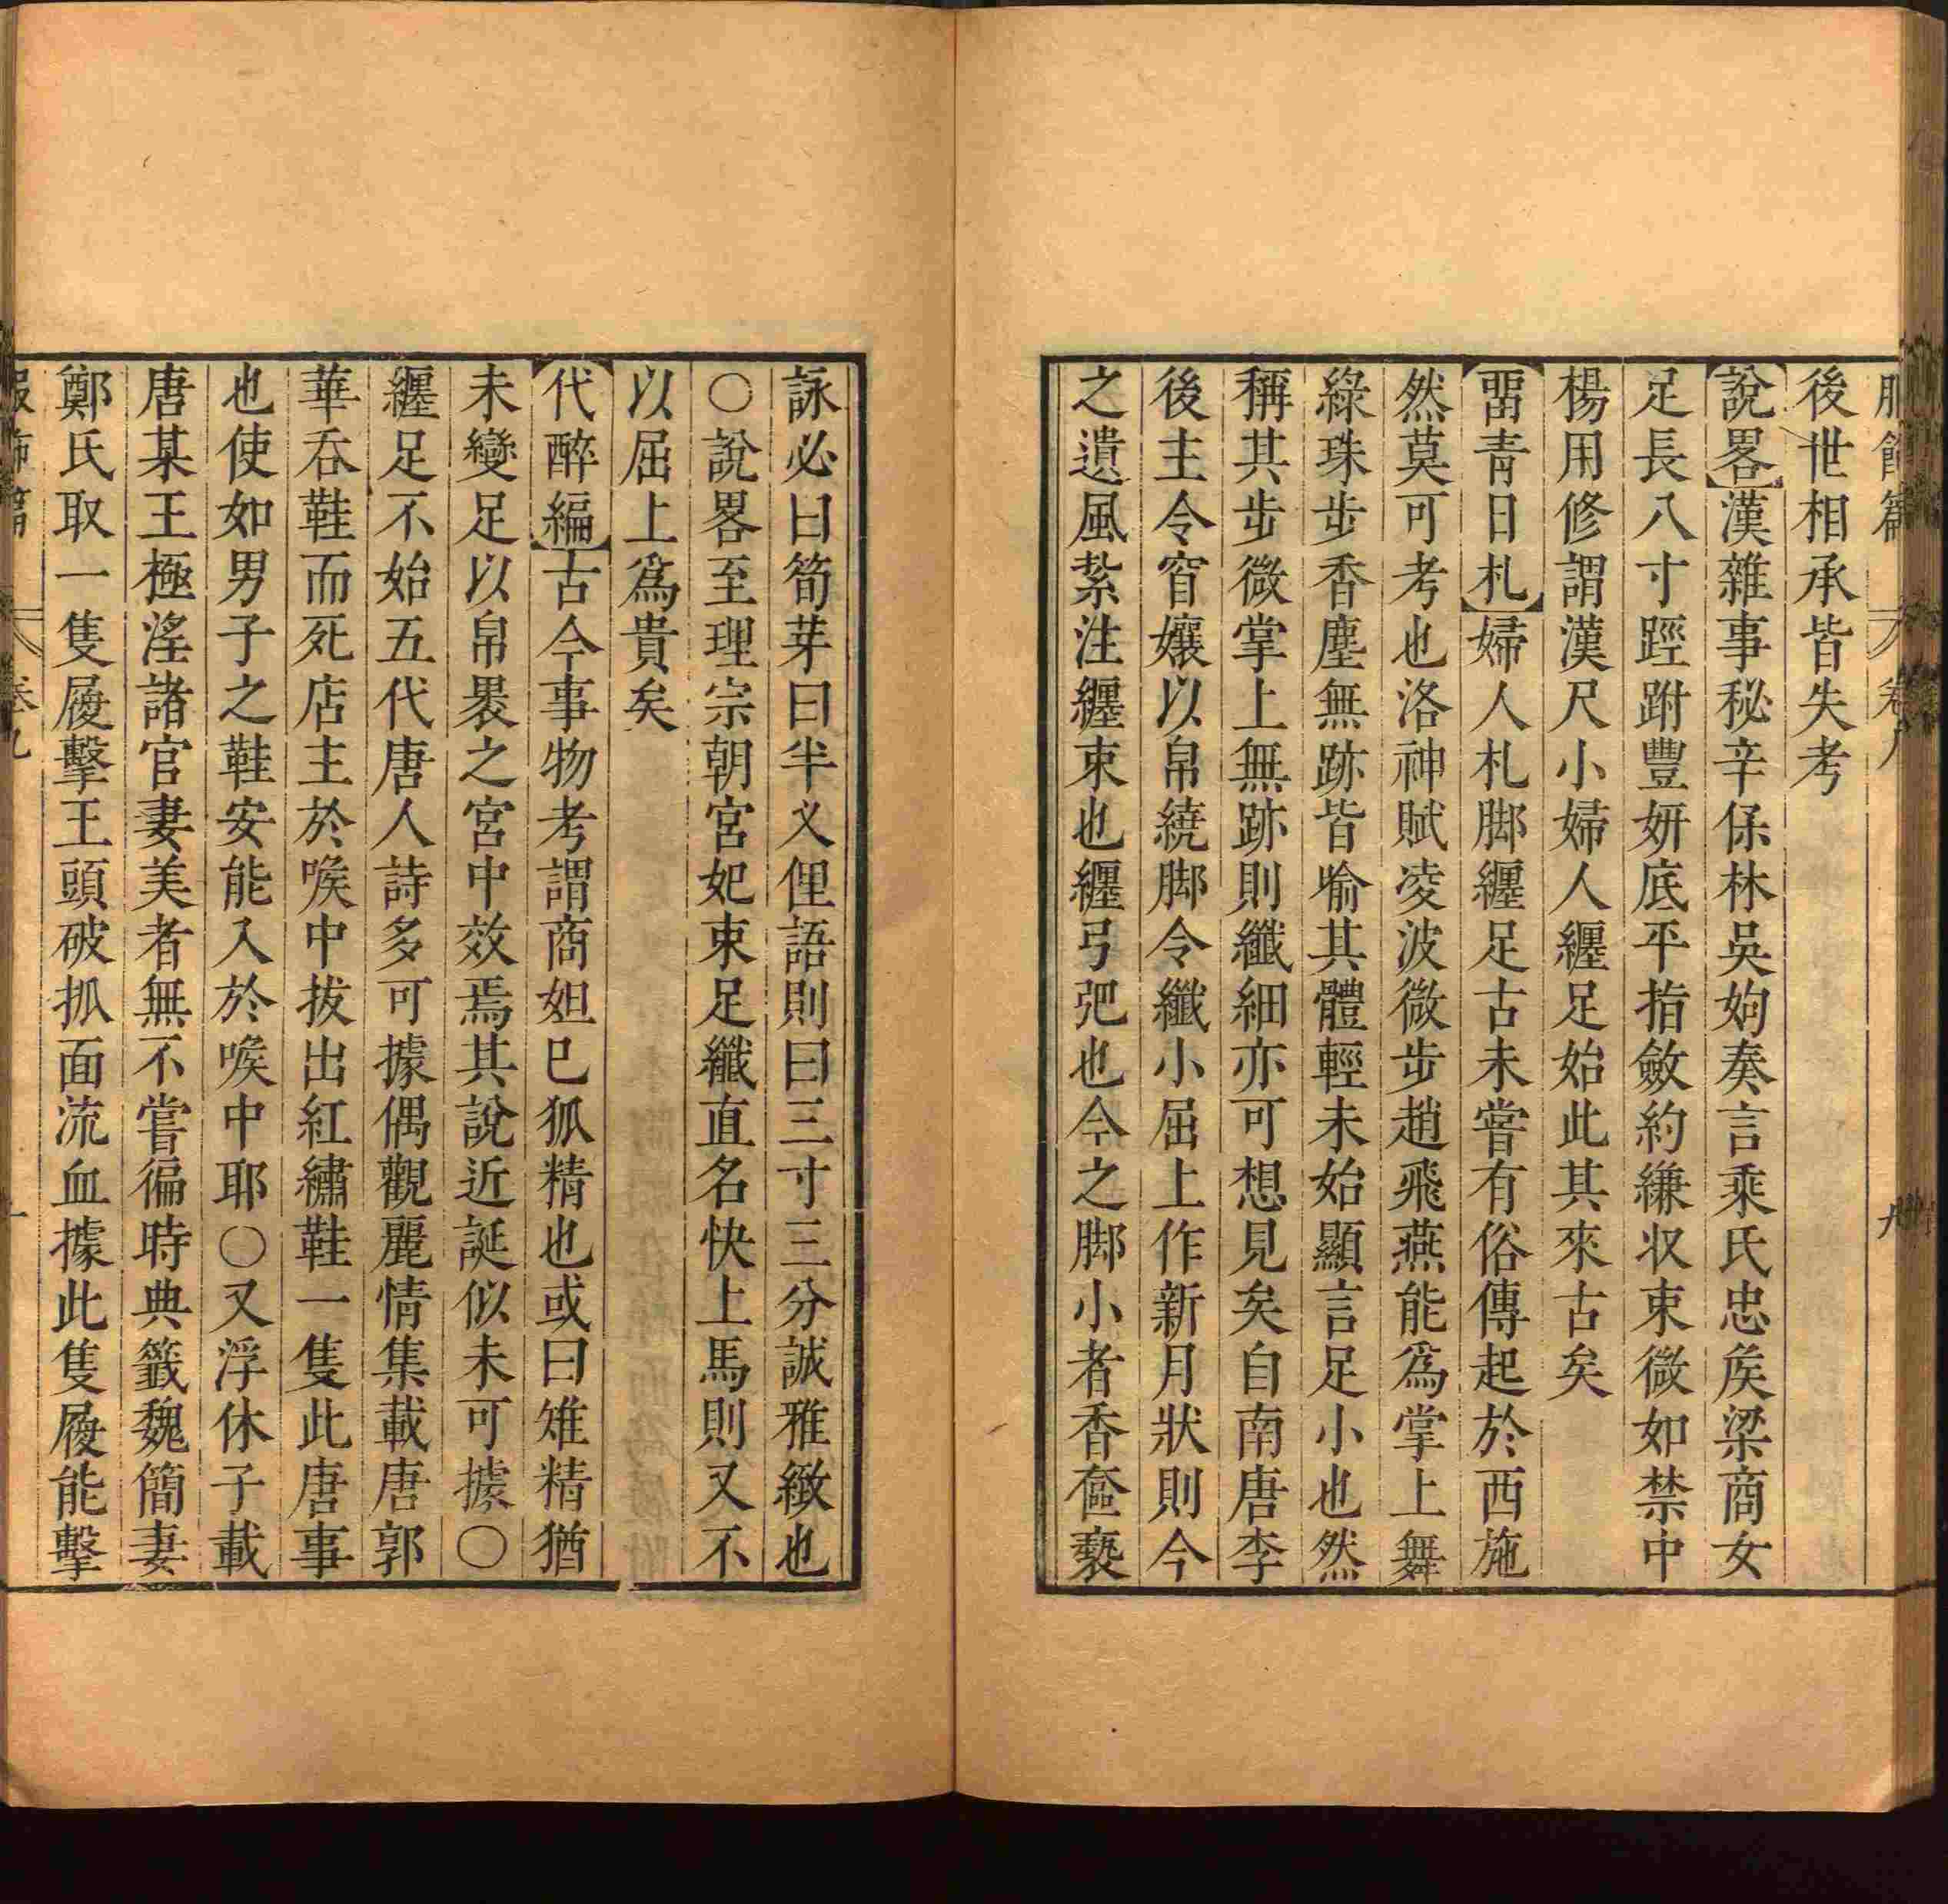 服飾篇 卷八 九
後世相承皆失考
說畧漢雜事秘辛保林吳姁奏言乘氏忠矦梁商女
足長八寸踁跗豐姸底平指斂約縑収束微如禁中
楊用修謂漢尺小婦人纏足始此其來古矣
畱青日札婦人札脚纏足古未嘗有俗傳起於西施
然莫可考也洛神賦凌波微步趙飛燕能爲掌上舞
綠珠步香塵無跡皆喻其體輕未始顯言足小也然
稱其步微掌上無跡則纖細亦可想見矣自南唐李
後主令窅孃以帛繞脚令纖小屈上作新月狀則今
之遺風紮注纏束也纏弓弝也今之脚小者香奩褻
詠必曰筍芽曰半义俚語則曰三寸三分誠雅緻也
○說畧至理宗朝宮妃束足纖直名快上馬則又不
以屈上爲貴矣
代醉編古今事物考謂商妲巳狐精也或曰雉精猶
未變足以帛裹之宮中效焉其說近誕似未可據○
纏足不始五代唐人詩多可據偶觀麗情集載唐郭
華吞鞋而死店主於喉中拔出紅繡鞋一隻此唐事
也使如男子之鞋安能入於喉中耶○又浮休子載
唐某王極淫諸官妻美者無不嘗徧時典籤魏簡妻
鄭氏取一隻履擊王頭破抓面流血據此隻履能擊
服飾篇 卷九